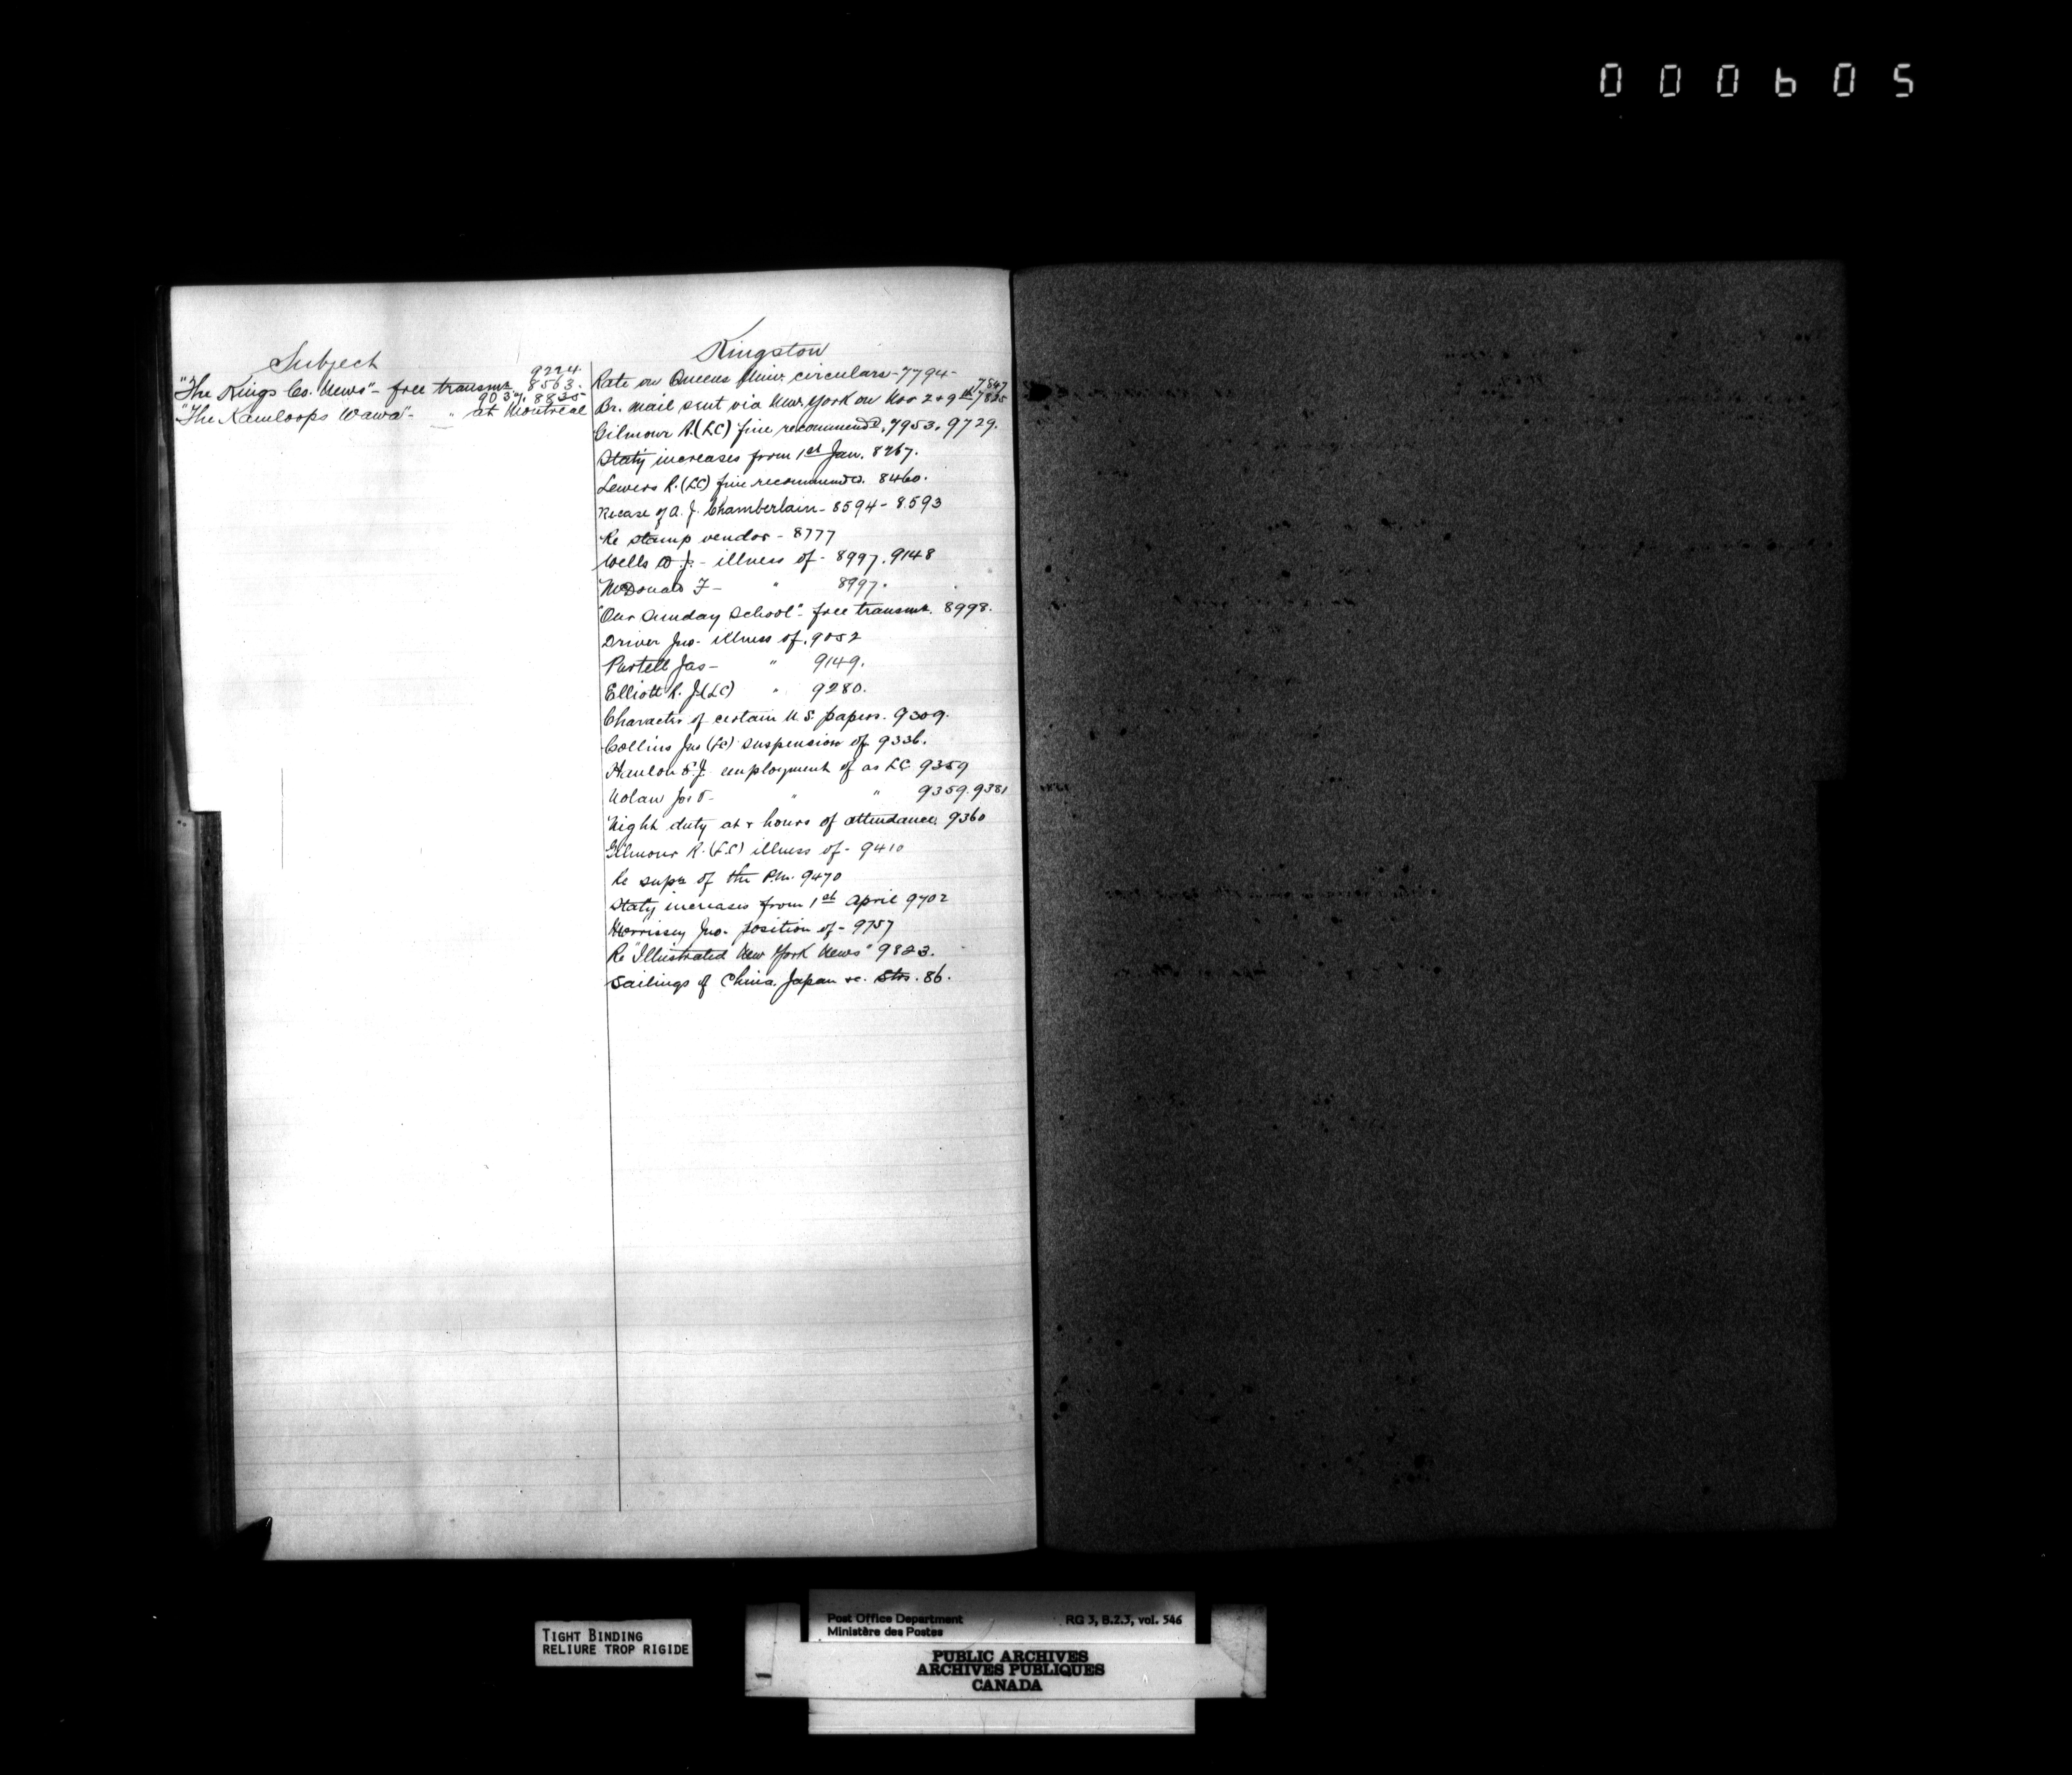 000605
Subject
9224.
"The Kings Co. News" - free transmn. 8563.
9037. 8835
"The Kamloops Wawa" - " at Montreal
Kingston
Rate on Queens Univ. circulars - 7794 -
7847
Br. mail sent via New York on Nov 2 & 9th 7825
Gilmour R. (LC) fine recommend'd. 7953. 9729.
Staty increases from 1st Jan. 8267.
Lewers R. (LC) fine recommend'd. 8460.
Re case of A. J. Chamberlain - 8594 - 8593
Re stamp vendor - 8777
Wells D. J. - illness of - 8997. 9148
McDonald F - " 8997.
"Our Sunday School" - free transmn. 8998.
Driver Jno - illness of. 9052
Purtell Jas - " 9149.
Elliott R. J. (LC) " 9280.
Character of certain U.S. papers. 9309.
Collins Jas (LC) suspension of 9336.
Hanlon S. J. employment of as LC 9359
Nolan " " 9359. 9381
Night duty at & hours of attendance. 9360
Gilmour R. (LC) illness of - 9410
Re supn of the P.M. 9470
Staty increases from 1st April 9702
Morrissey Jno. position of - 9757
Re "Illustrated New York News" 9823.
Sailings of China, Japan &c. Strs. 86.
TIGHT BINDING
RELIURE TROP RIGIDE
Post Office Department RG 3, B.2.3, vol. 546
Ministère des Postes
PUBLIC ARCHIVES
ARCHIVES PUBLIQUES
CANADA